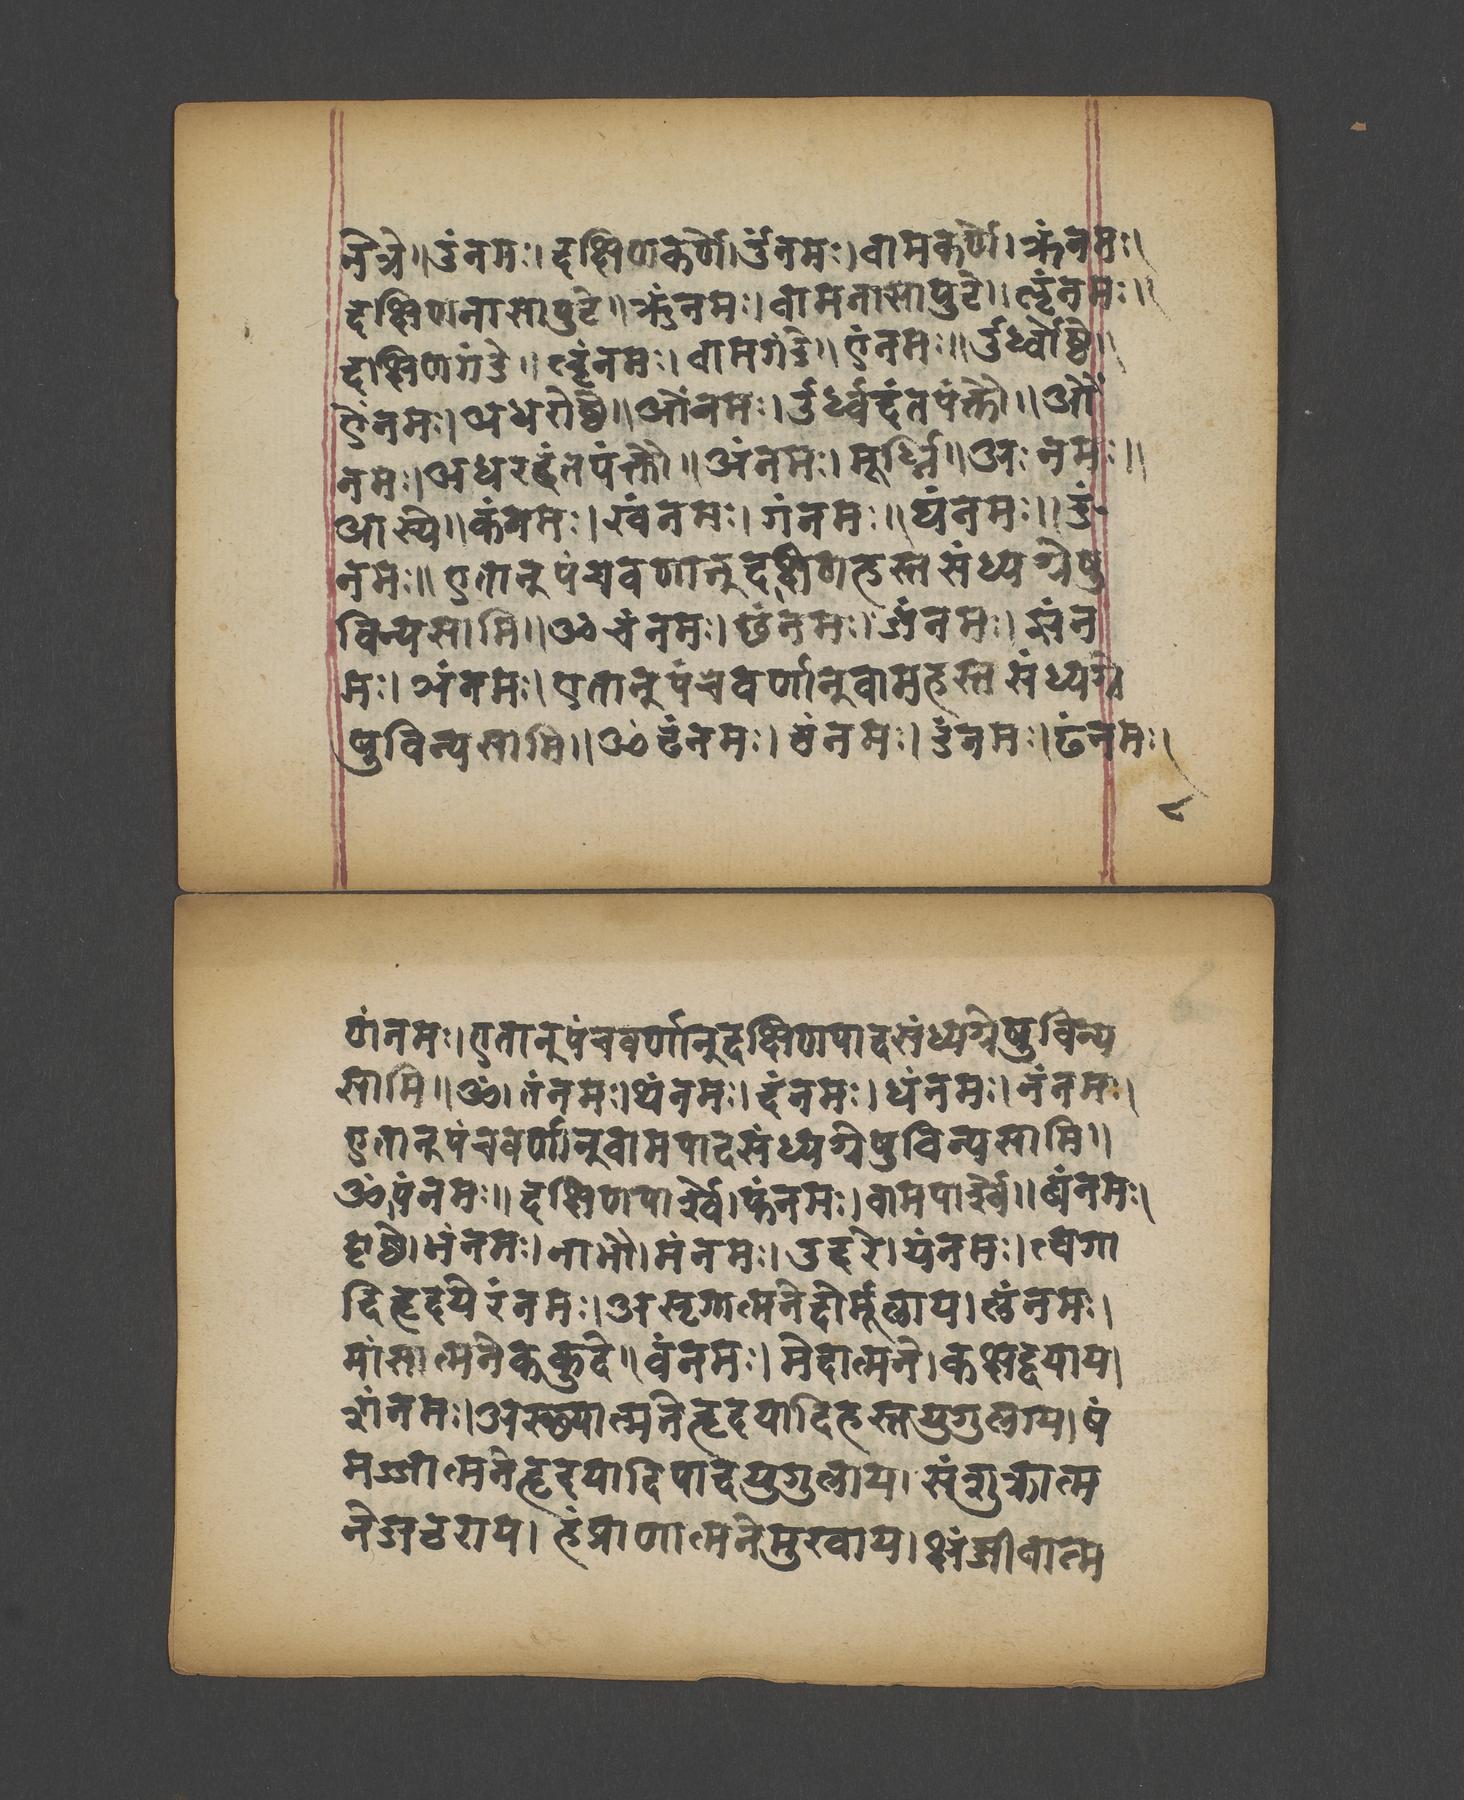 नेत्रे॥उंनमः।दक्षिणकर्णे।ऊंनमः।वामकर्णे।ऋंनमः।
दक्षिणनासापुटे॥ॠंनमः।वामनासापुटे॥ऌंनमः॥
दक्षिणगंडे॥ॡंनमः।वामगंडे॥एंनमः॥ऊर्ध्वोष्ठे॥
ऐंनमः।अधरोष्ठे॥ओंनमः।ऊर्ध्वदंतपंक्तौ॥औं
नमः।अधरदंतपंक्तौ॥अंनमः।मूर्ध्नि॥अः नमः॥
आस्ये॥कंनमः।खंनमः।गंनमः॥घंनमः॥ङं
नमः॥एतान्पंचवर्णान्दक्षिणहस्तसंध्यग्रेषु
विन्यसामि॥ॐचंनमः।छंनमः।जंनमः।झंन
मः।ञंनमः।एतान्पंचवर्णान्वामहस्तसंध्यग्रे
षुविन्यसामि॥ॐटंनमः।ठंनमः।डंनमः।ढंनमः।
८
णंनमः।एतान्पंचवर्णान्दक्षिणपादसंध्यग्रेषुविन्य
सामि॥ॐ।तंनमः।थंनमः।दंनमः।धंनमः।नंनमः।
एतान्पंचवर्णान्वामपादसंध्यग्रेषुविन्यसामि॥
ॐपंनमः॥दक्षिणपार्श्वे।फंनमः।वामपार्श्वे॥बंनमः।
पृष्ठे।भंनमः।नाभौ।मंनमः।उदरे।यंनमः।त्वगा
दिहृदयेरंनमः।असृगात्मनेदोर्मूलाय।लंनमः।
मांसात्मनेककुदे॥वंनमः।मेदात्मने।कक्षद्वयाय।
शंनमः।अस्थ्यात्मनेहृदयादिहस्तयुगुलाय।षं
मज्जात्मनेहृदयादिपादयुगुलाय।संशुक्रात्म
नेजठराय।हंप्राणात्मनेमुखाय।क्षंजीवात्म